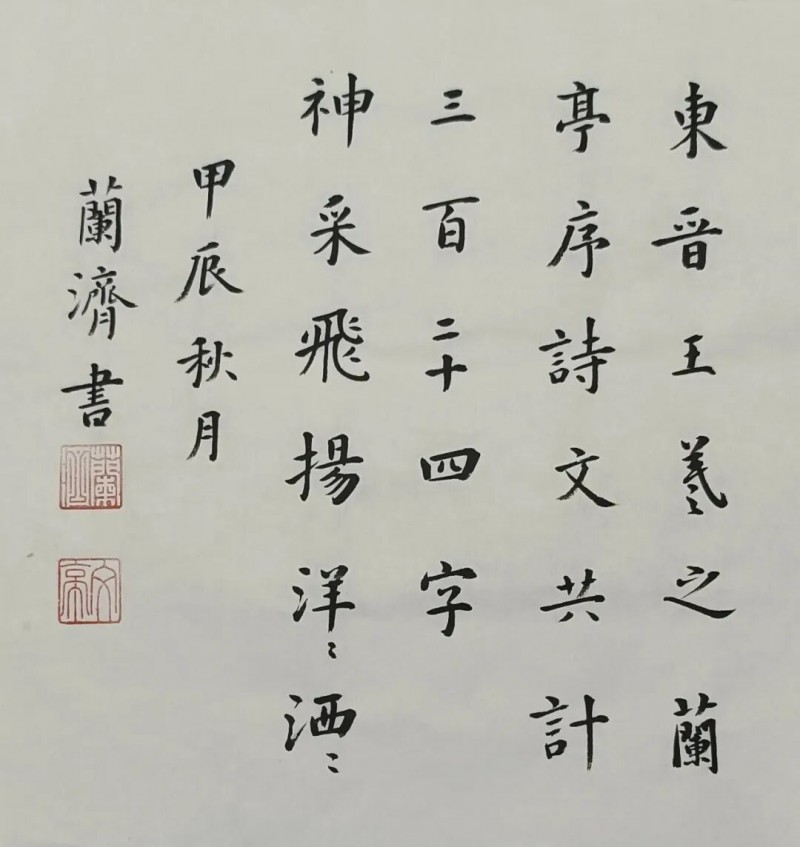 東晉王羲之蘭
亭序詩文共計
三百二十四字
神采飛揚洋〻洒〻
甲辰秋月
蘭濟書